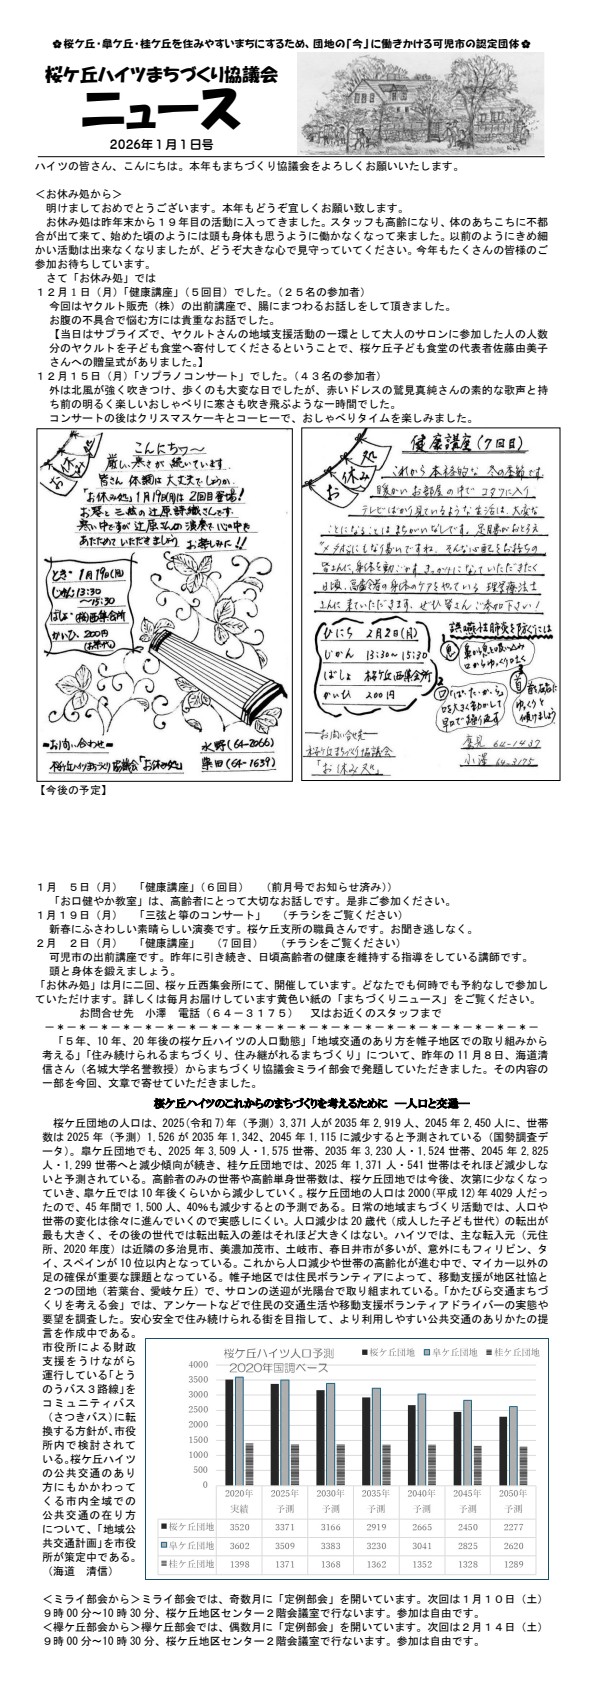 ✿桜ケ丘・皐ケ丘・桂ケ丘を住みやすいまちにするため、団地の「今」に働きかける可児市の認定団体✿
桜ケ丘ハイツまちづくり協議会
ニュース
2026年1月1日号
ハイツの皆さん、こんにちは。本年もまちづくり協議会をよろしくお願いいたします。
＜お休み処から＞
明けましておめでとうございます。本年もどうぞ宜しくお願い致します。
お休み処は昨年末から１９年目の活動に入ってきました。スタッフも高齢になり、体のあちこちに不都
合が出て来て、始めた頃のようには頭も身体も思うように働かなくなって来ました。以前のようにきめ細
かい活動は出来なくなりましたが、どうぞ大きな心で見守っていてください。今年もたくさんの皆様のご
参加お待ちしています。
さて「お休み処」では
１２月１日（月）「健康講座」（５回目）でした。（２５名の参加者）
今回はヤクルト販売（株）の出前講座で、腸にまつわるお話しをして頂きました。
お腹の不具合で悩む方には貴重なお話でした。
【当日はサプライズで、ヤクルトさんの地域支援活動の一環として大人のサロンに参加した人の人数
分のヤクルトを子ども食堂へ寄付してくださるということで、桜ケ丘子ども食堂の代表者佐藤由美子
さんへの贈呈式がありました。】
１２月１５日（月）「ソプラノコンサート」でした。（４３名の参加者）
外は北風が強く吹きつけ、歩くのも大変な日でしたが、赤いドレスの鷲見真純さんの素的な歌声と持
ち前の明るく楽しいおしゃべりに寒さも吹き飛ぶような一時間でした。
コントサートの後はクリスマスケーキとコーヒーで、おしゃべりタイムを楽しみました。
お休み処
こんにちわ～
厳しい寒さが続いています。
皆さん体調は大丈夫でしょうか。
「お休み処」1月19日(月)は2回目登場!
お琴と三弦の辻原詩織さんです。
寒い中ですが辻原さんの演奏で心の中を
あたためていただきましょう お楽しみに!!
とき・1月19日(月)
じかん 13:30
～15:30
ばしょ (桜)西集会所
かいひ. 200円
(お茶代)
－お問い合わせ－
桜ケ丘ハイツまちづくり協議会「お休み処」
水野(64-2066)
柴田(64-1639)
お休み処
健康講座(7回目)
これから本格的な冬の季節です。
暖かいお部屋の中でコタツに入り
テレビばかり見ているような生活は、大変な
ことになることはまちがいなしです。足腰がおとろえ
メタボにもなり易いですね。そんな心配をお持ちの
皆さんに、身体を動かすきっかけになっていただきたく
日頃、高齢者の身体のケアをやっている理学療法士
さんに来ていただきます。ぜひ皆さんご参加下さい!
ひにち 2月2日(月)
じかん 13:30～15:30
ばしょ 桜ケ丘西集会所
かいひ 200円
誤嚥性肺炎を防ぐには
息 鼻から息を吸い込み
口からゆっくりはく
口 「ぱ・た・か・ら」
口を大きく動かして
早口で繰り返す
首 前後左右に
ゆっくりと
傾けましょう
－お問い合せ先－
桜ケ丘まちづくり協議会
「お休み処」
鷲見 64-1437
小澤 64-3175
【今後の予定】
１月　５日（月）　「健康講座」（６回目）　（前月号でお知らせ済み））
「お口健やか教室」は、高齢者にとって大切なお話しです。是非ご参加ください。
１月１９日（月）　「三弦と箏のコンサート」　（チラシをご覧ください）
新春にふさわしい素晴らしい演奏です。桜ケ丘支所の職員さんです。お聞き逃しなく。
２月　２日（月）　「健康講座」　（７回目）　（チラシをご覧ください）
可児市の出前講座です。昨年に引き続き、日頃高齢者の健康を維持する指導をしている講師です。
頭と身体を鍛えましょう。
「お休み処」は月に二回、桜ヶ丘西集会所にて、開催しています。どなたでも何時でも予約なしで参加し
ていただけます。詳しくは毎月お届けしています黄色い紙の「まちづくりニュース」をご覧ください。
お問合せ先　小澤　電話（６４－３１７５）　又はお近くのスタッフまで
－＊－＊－＊－＊－＊－＊－＊－＊－＊－＊－＊－＊－＊－＊－＊－＊－＊－＊－＊－＊－
「５年、10年、20年後の桜ケ丘ハイツの人口動態」「地域交通のあり方を帷子地区での取り組みから
考える」「住み続けられるまちづくり、住み継がれるまちづくり」について、昨年の11月８日、海道清
信さん（名城大学名誉教授）からまちづくり協議会ミライ部会で発題していただきました。その内容の
一部を今回、文章で寄せていただきました。
桜ケ丘ハイツのこれからのまちづくりを考えるために　―人口と交通―
桜ケ丘団地の人口は、2025(令和7)年（予測）3,371人が2035年2,919人、2045年2,450人に、世帯
数は2025年（予測）1,526が2035年1,342、2045年1,115に減少すると予測されている（国勢調査デ
ータ）。皐ケ丘団地でも、2025年3,509人・1,575世帯、2035年3,230人・1,524世帯、2045年2,825
人・1,299世帯へと減少傾向が続き、桂ケ丘団地では、2025年1,371人・541世帯はそれほど減少しな
いと予測されている。高齢者のみの世帯や高齢単身世帯数は、桜ケ丘団地では今後、次第に少なくなっ
ていき、皐ケ丘では10年後くらいから減少していく。桜ケ丘団地の人口は2000(平成12)年4029人だっ
たので、45年間で1,500人、40％も減少するとの予測である。日常の地域まちづくり活動では、人口や
世帯の変化は徐々に進んでいくので実感しにくい。人口減少は20歳代（成人した子ども世代）の転出が
最も大きく、その後の世代では転出転入の差はそれほど大きくはない。ハイツでは、主な転入元（元住
所、2020年度）は近隣の多治見市、美濃加茂市、土岐市、春日井市が多いが、意外にもフィリピン、タ
イ、スペインが10位以内となっている。これから人口減少や世帯の高齢化が進む中で、マイカー以外の
足の確保が重要な課題となっている。帷子地区では住民ボランティアによって、移動支援が地区社協と
２つの団地（若葉台、愛岐ケ丘）で、サロンの送迎が光陽台で取り組まれている。「かたびら交通まちづ
くりを考える会」では、アンケートなどで住民の交通生活や移動支援ボランティアドライバーの実態や
要望を調査した。安心安全で住み続けられる街を目指して、より利用しやすい公共交通のありかたの提
言を作成中である。
市役所による財政
支援をうけながら
運行している「とう
のうバス３路線」を
コミュニティバス
（さつきバス）に転
換する方針が、市役
所内で検討されて
いる。桜ケ丘ハイツ
の公共交通のあり
方にもかかわって
くる市内全域での
公共交通の在り方
について、「地域公
共交通計画」を市役
所が策定中である。
（海道　清信）
桜ケ丘ハイツ人口予測
2020年国調ベース
■桜ケ丘団地　■皐ケ丘団地　■桂ケ丘団地
4000
3500
3000
2500
2000
1500
1000
500
0
2020年 2025年 2030年 2035年 2040年 2045年 2050年
実績 予測 予測 予測 予測 予測 予測
■桜ケ丘団地 3520 3371 3166 2919 2665 2450 2277
■皐ケ丘団地 3602 3509 3383 3230 3041 2825 2620
■桂ケ丘団地 1398 1371 1368 1362 1352 1328 1289
＜ミライ部会から＞ミライ部会では、奇数月に「定例部会」を開いています。次回は１月１０日（土）
９時00分～10時30分、桜ケ丘地区センター２階会議室で行ないます。参加は自由です。
＜欅ケ丘部会から＞欅ケ丘部会では、偶数月に「定例部会」を開いています。次回は２月１４日（土）
９時00分～10時30分、桜ケ丘地区センター２階会議室で行ないます。参加は自由です。